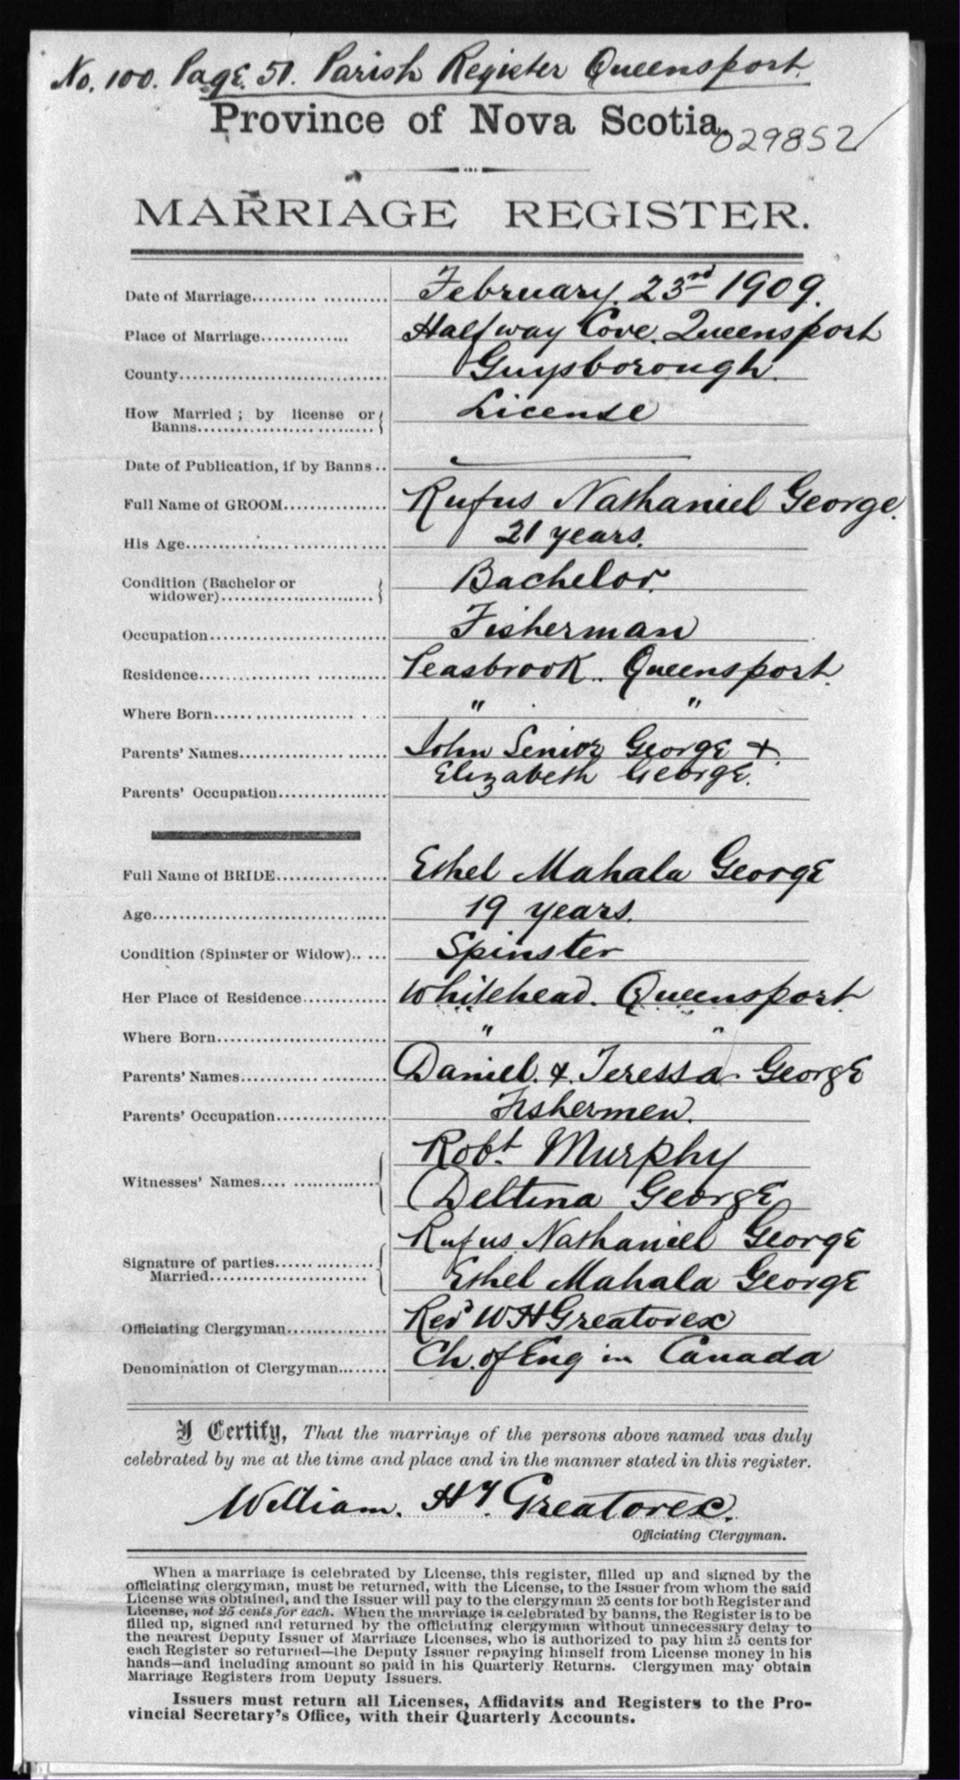 No. 100. Page. 51. Parish Register Queensport.
Province of Nova Scotia.
029852
MARRIAGE REGISTER.
Date of Marriage.......... .......... February. 23rd 1909.
Place of Marriage............. Halfway Cove. Queensport
County................................ Guysborough.
How Married ; by license or
Banns.......................... License
Date of Publication, if by Banns..
Full Name of GROOM................ Rufus Nathaniel George.
His Age............................... 21 years.
Condition (Bachelor or
widower)......................... Bachelor.
Occupation........................... Fisherman
Residence............................. Seasbrook.. Queensport.
Where Born........................... " "
Parents' Names....................... John Senior George &
Elizabeth George.
Parents' Occupation.................
Full Name of BRIDE................. Ethel Mahala George
Age..................................... 19 years.
Condition (Spinster or Widow).. ... Spinster
Her Place of Residence............. Whitehead. Queensport
Where Born........................... " "
Parents' Names....................... Daniel. & Teressa George
Parents' Occupation................. Fishermen.
Robt. Murphy
Witnesses' Names.... ..............
Deltina George
Rufus Nathaniel George
Signature of parties..................
Married........................... Ethel Mahala George
Officiating Clergyman............... Revd W H Greatorex
Denomination of Clergyman........ Ch. of Eng in Canada
I Certify, That the marriage of the persons above named was duly
celebrated by me at the time and place and in the manner stated in this register.
William. Hy. Greatorex.
Officiating Clergyman.
When a marriage is celebrated by License, this register, filled up and signed by the
officiating clergyman, must be returned, with the License, to the Issuer from whom the said
License was obtained, and the Issuer will pay to the clergyman 25 cents for both Register and
License, not 25 cents for each. When the marriage is celebrated by banns, the Register is to be
filled up, signed and returned by the officiating clergyman without unnecessary delay to
the nearest Deputy Issuer of Marriage Licenses, who is authorized to pay him 25 cents for
each Register so returned—the Deputy Issuer repaying himself from License money in his
hands—and including amount so paid in his Quarterly Returns. Clergymen may obtain
Marriage Registers from Deputy Issuers.
Issuers must return all Licenses, Affidavits and Registers to the Pro-
vincial Secretary's Office, with their Quarterly Accounts.